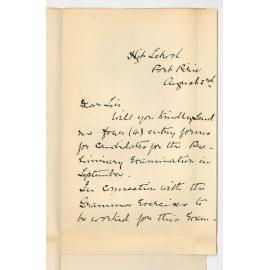 High School
Port Pirie
August 2nd
Dear Sir
Will you kindly send
me four (4) entry forms
for candidates for the Pre-
liminary Examination in
September.
In connection with the
Grammar Exercises to
be worked for this Exam-